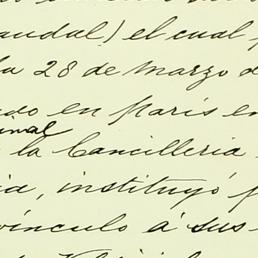 audal) el cual
la 28 de marzo d
ado en parís en
inal
la Cancilleria
ia, instituyó
vínculo á sus